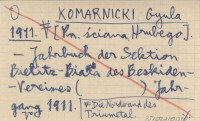 KOMARNICKI Gyula
1911. # [Pn. ściana Hrubego].
– Jahrbuch der Sektion
Bielitz-Biala des Beskiden-
Vereines ( ) Jahr-
gang 1911. # Die Nordwand des
Triumetal.